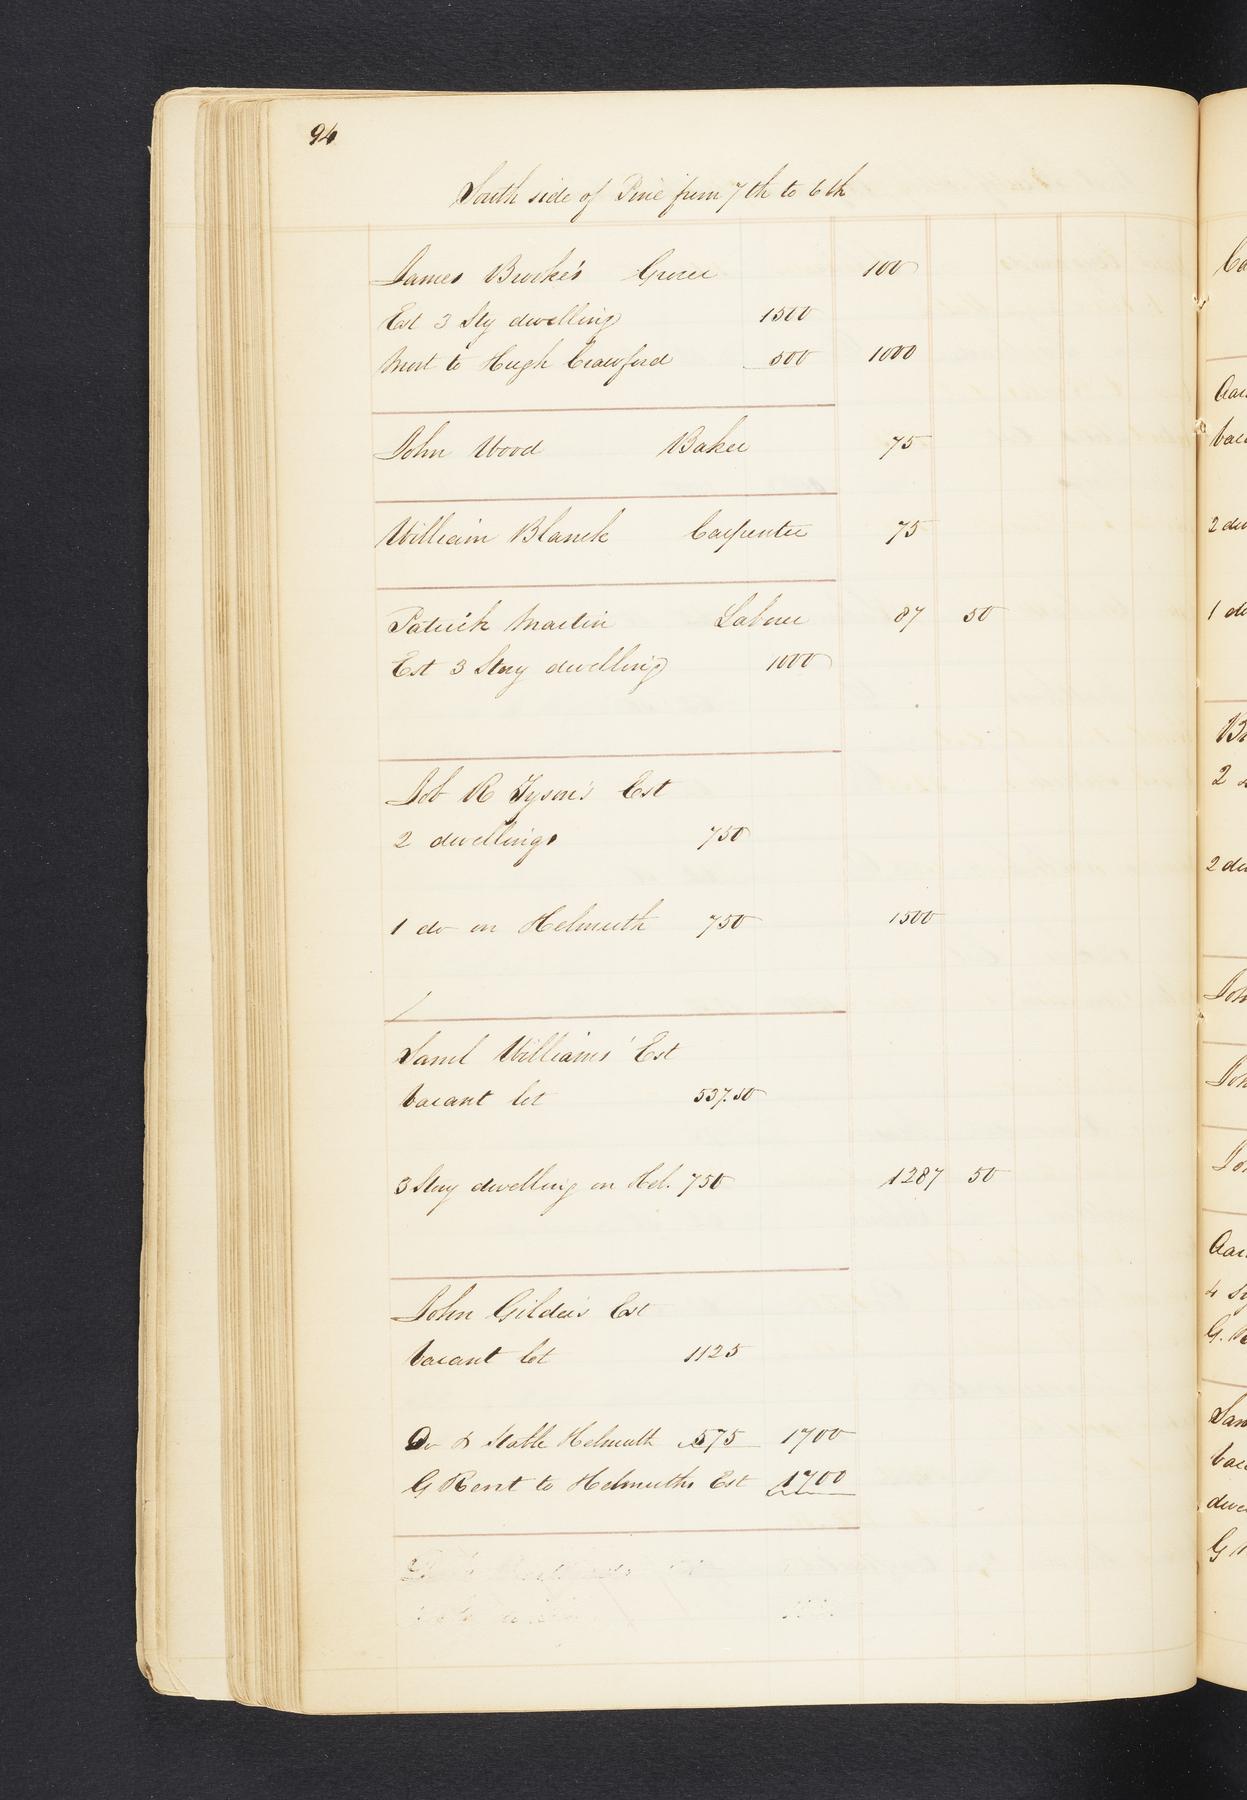 94
South side of Pine from 7th to 6th
James Burke's Grocer 100
Est 3 Sty dwelling 1500
Mort to Hugh Crawford 500 1000
John Wood Baker 75
William Blanck Carpenter 75
Patrick Martin Laborer 87 50
Est 3 Story dwelling 1000
Job R Tyson's Est
2 dwellings 750
1 do on Helmuth 750 1500
Saml Williams' Est
Vacant lot 537.50
3 Story dwelling on Hel. 750 1287 50
John Gilder's Est
Vacant lot 1125
Do & Stable Helmuth 575 1700
G Rent to Helmuths Est 1700